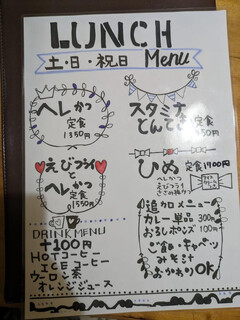 LUNCH
土・日・祝日 Menu
ヘレかつ
定食
1350円
スタミナ
とんてき
定食
えびフライ
と
ヘレかつ
定食
1550円
ひめ 定食 1700円
ヘレかつ
えびフライ
DRINK MENU
+100円
HOTコーヒー
ICEコーヒー
ウーロン茶
オレンジジュース
追加メニュー
カレー単品 300円
おろしポンズ 100円
ご飯・キャベツ
みそ汁
おかわりOK